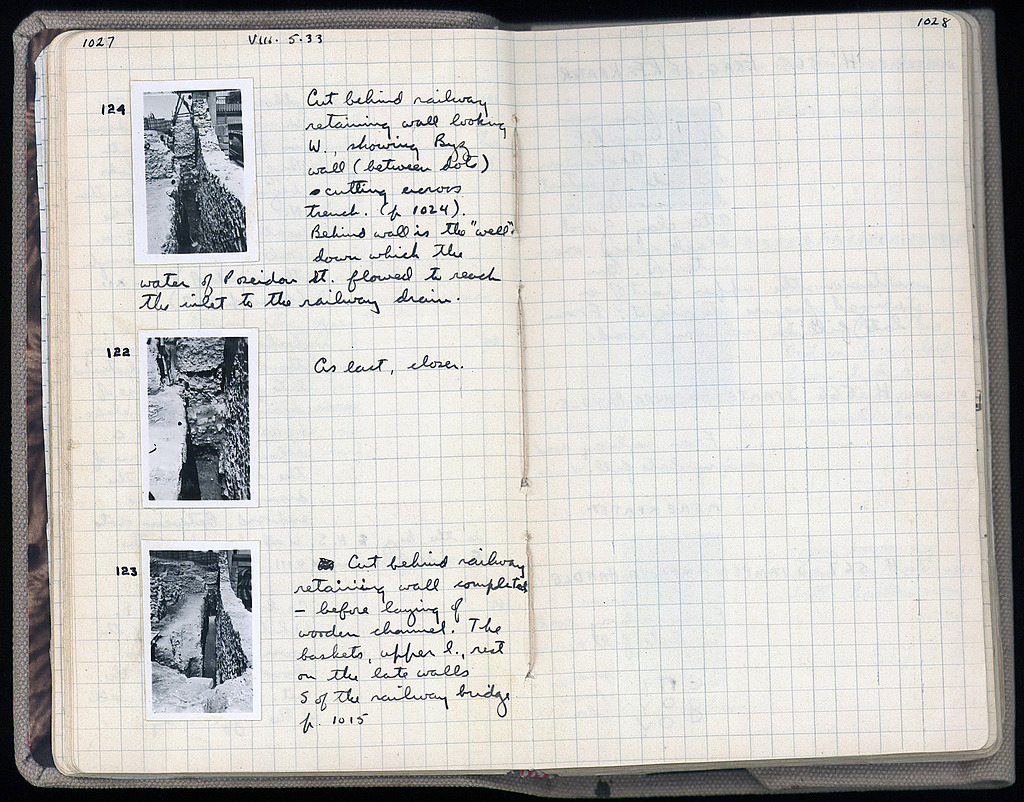 1027
VIII. 5.33
1028
124
Cut behind railway
retaining wall looking
W., showing Byz
wall (between dots)
cutting across
trench. (p 1024).
Behind wall is the "well"
down which the
water of Poseidon St. flowed to reach
the inlet to the railway drain.
122
As last, closer.
123
Cut behind railway
retaining wall completed
- before laying of
wooden channel. The
baskets, upper l., rest
on the late walls
S of the railway bridge
p. 1015